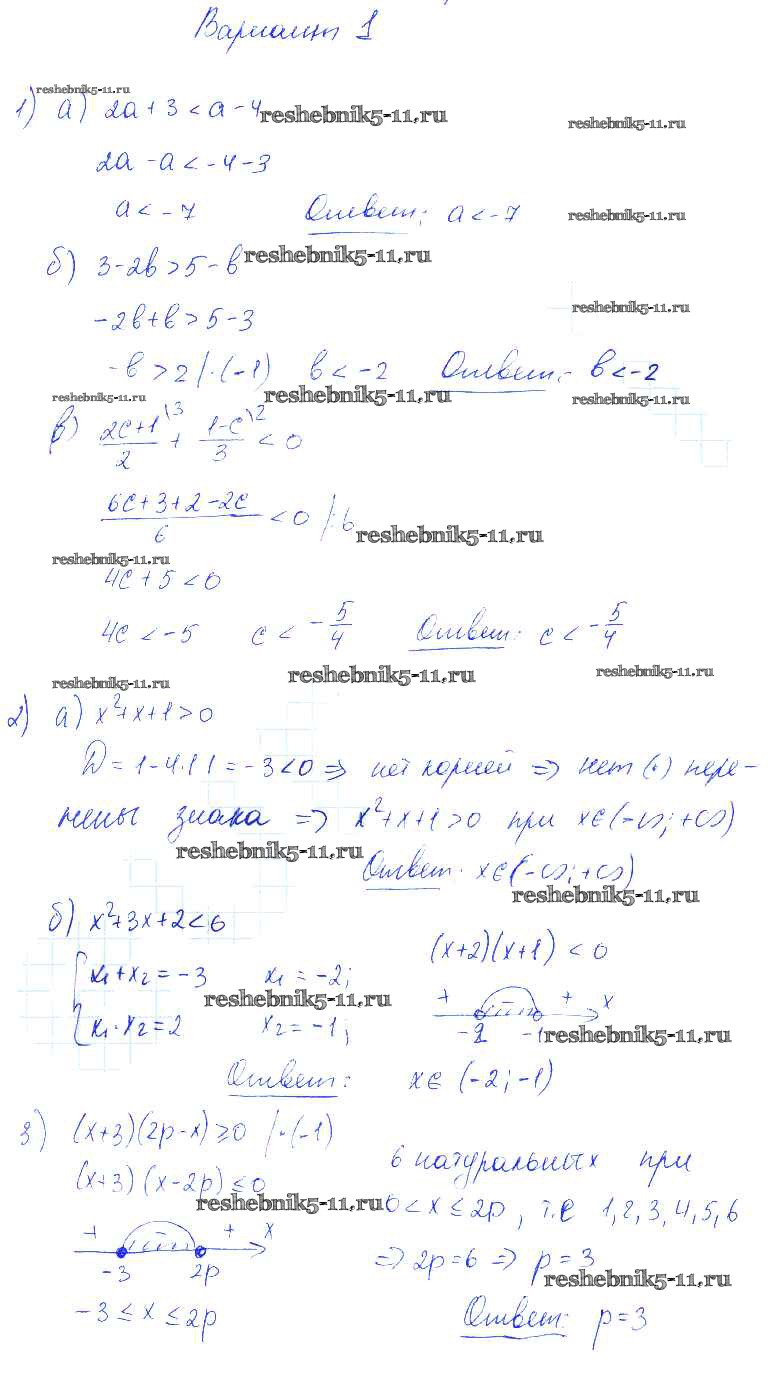 Вариант 1
reshebnik5-11.ru
1) а) 2a + 3 < a - 4 reshebnik5-11.ru
reshebnik5-11.ru
2a - a < -4 -3
a < -7 Ответ: a < -7 reshebnik5-11.ru
б) 3-2b > 5 - b reshebnik5-11.ru
reshebnik5-11.ru
-2b+b > 5-3
-b > 2 |·(-1) b < -2 Ответ: b < -2
reshebnik5-11.ru reshebnik5-11.ru reshebnik5-11.ru
в) (2c+1)/2 \3 + (1-c)/3 \2 < 0
(6c+3+2-2c)/6 < 0 |·6 reshebnik5-11.ru
reshebnik5-11.ru
4c + 5 < 0
4c < -5 c < -5/4 Ответ: c < -5/4
reshebnik5-11.ru reshebnik5-11.ru reshebnik5-11.ru
2) а) x²+x+1 > 0
D = 1-4·1·1 = -3 < 0 => нет корней => нет (·) пере-
мены знака => x²+x+1 > 0 при x∈(-∞; +∞)
reshebnik5-11.ru
Ответ. x∈(-∞; +∞)
reshebnik5-11.ru
б) x²+3x+2 < 6
(x+2)(x+1) < 0
x₁+x₂ = -3 x₁ = -2;
reshebnik5-11.ru
+ + x
x₁·x₂ = 2 x₂ = -1; -2 -1 reshebnik5-11.ru
Ответ: x∈ (-2; -1)
3) (x+3)(2p-x) ≥ 0 |·(-1)
6 натуральных при
(x+3)(x-2p) ≤ 0
reshebnik5-11.ru 0 < x ≤ 2p, т.е 1, 2, 3, 4, 5, 6
+ + x
-3 2p => 2p=6 => p = 3
reshebnik5-11.ru
-3 ≤ x ≤ 2p Ответ: p=3